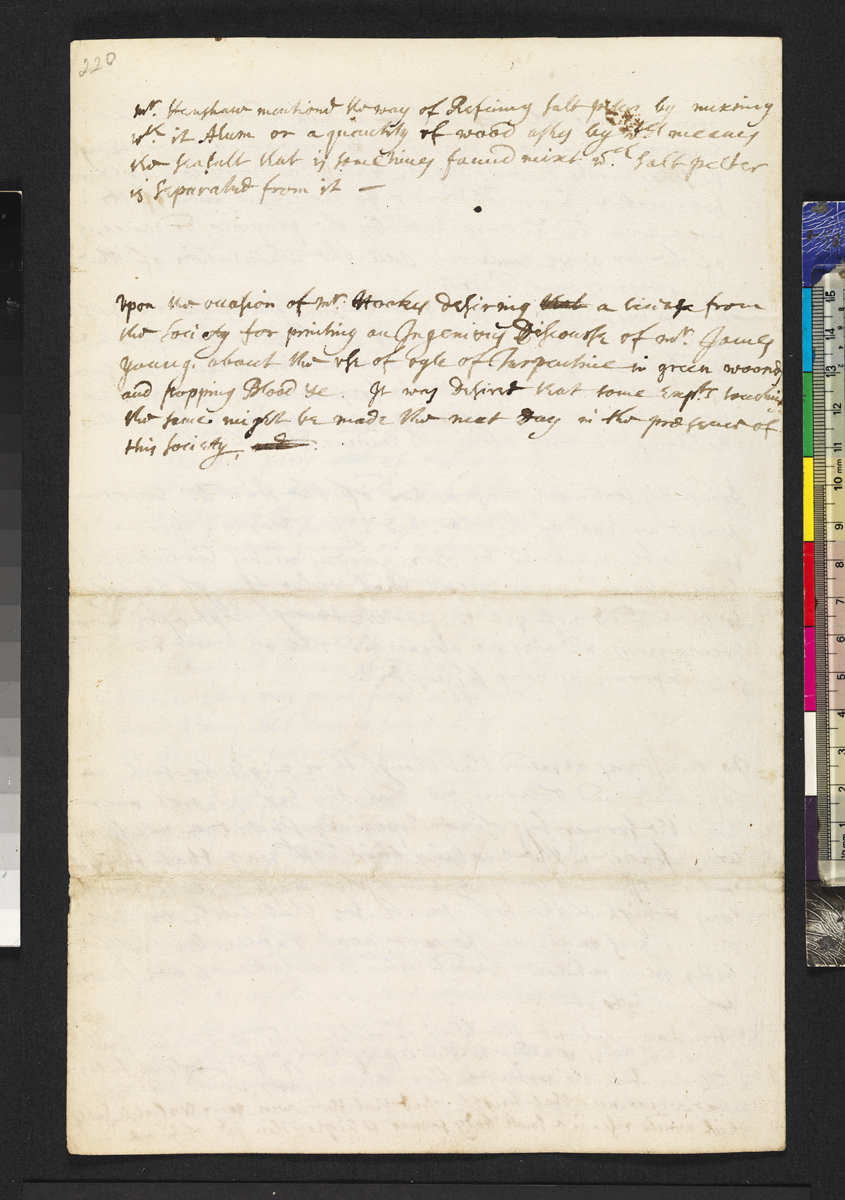 220
mr. Henshaw mentiond the way of Refining salt peter by mixing
wth it Alum or a quantity of wood ashes by wch means
the seasalt that is sometimes found mixt wth salt peter
is separated from it —
Vpon the occasion of mr. Hookes desiring that a licence from
the society for printing an Ingenious Discourse of mr. James
young. about the vse of oyle of Turpentine in green woonds
and stopping Blood &c. It was desired that some Expts. touching
the same might be made the next Day in the presence of
this society,